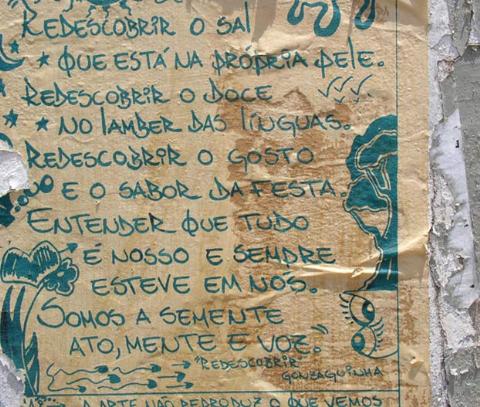 REDESCOBRIR O SAL
QUE ESTÁ NA PRÓPRIA PELE.
REDESCOBRIR O DOCE
NO LAMBER DAS LÍNGUAS.
REDESCOBRIR O GOSTO
E O SABOR DA FESTA.
ENTENDER QUE TUDO
É NOSSO E SEMPRE
ESTEVE EM NÓS.
SOMOS A SEMENTE
ATO, MENTE E VOZ."
"REDESCOBRIR"
GONZAGUINHA
ARTE NÃO REPRODUZ O QUE VEMOS